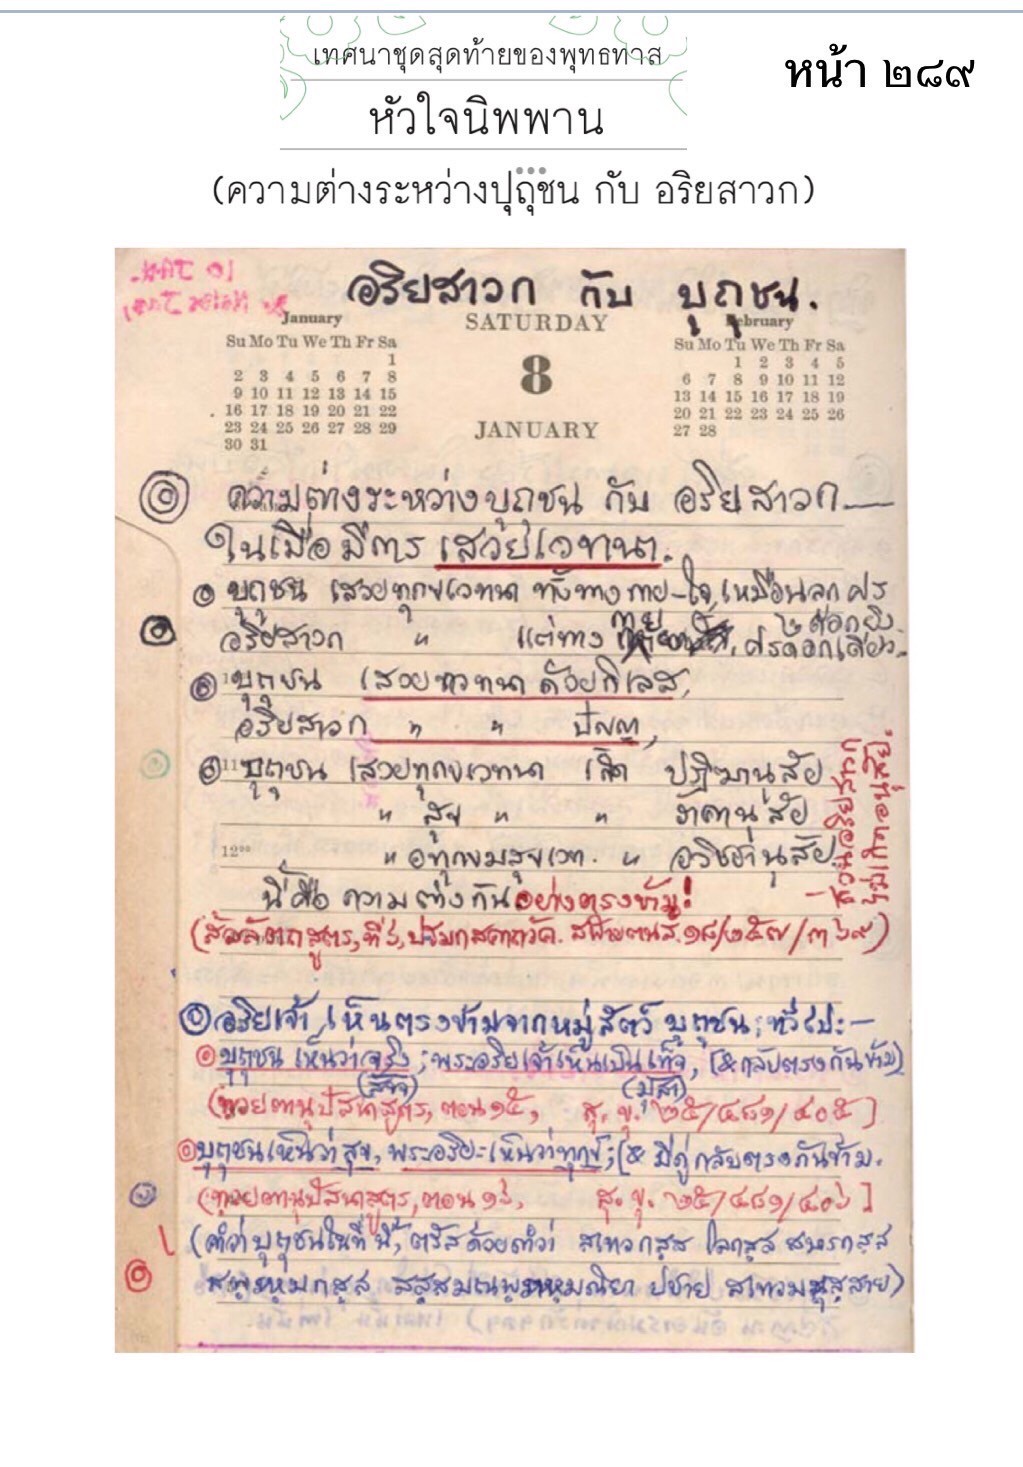 เทศนาชุดสุดท้ายของพุทธทาส
หน้า ๒๘๙
หัวใจนิพพาน
(ความต่างระหว่างปุถุชน กับ อริยสาวก)
อริยสาวก กับ บุถุชน.
January
SATURDAY
February
Su Mo Tu We Th Fr Sa
1
2 3 4 5 6 7 8
9 10 11 12 13 14 15
16 17 18 19 20 21 22
23 24 25 26 27 28 29
30 31
8
JANUARY
Su Mo Tu We Th Fr Sa
1 2 3 4 5
6 7 8 9 10 11 12
13 14 15 16 17 18 19
20 21 22 23 24 25 26
27 28
ความต่างระหว่างบุถุชน กับ อริยสาวก
ในเมื่อมีการ เสวยเวทนา.
บุถุชน เสวยทุกขเวทนา ทั้งทางกาย-ใจ, เหมือนลูกศร
๒ ดอกยิง.
อริยสาวก " แต่ทาง กาย ศรดอกเดียว.
บุถุชน เสวยเวทนา ด้วยกิเลส,
อริยสาวก " " ปัญญา,
บุถุชน เสวยทุกขเวทนา เกิด ปฏิฆานุสัย
" สุข " " ราคานุสัย
12⁰⁰ " อทุกขมสุขเวท. " อวิชชานุสัย.
ส่วนอริยสาวก ไม่เกิดอนุสัย.
นี้คือ ความต่างกันอย่างตรงข้าม!
(สัลลัตถสูตร, ที่๖, ปฐมกสคาถวัค. สฬายตนสํ.๑๘/๒๕๗/๓๖๙)
อริยเจ้า เห็นตรงข้ามจากหมู่สัตว์ บุถุชน, ทั่วไป:—
บุถุชน เห็นว่าจริง ; พระอริยเจ้าเห็นเป็นเท็จ, (& กลับตรงกันข้าม)
(สัจจ) (มุสา)
(ทวยตานุปัสนาสูตร, ตอน๑๕, สุ. ขุ. ๒๕/๔๘๑/๔๐๕]
บุถุชนเห็นว่าสุข, พระอริยะเห็นว่าทุกข์; (& มีคู่กลับตรงกันข้าม.
(ทวยตานุปัสนาสูตร, ตอน๑๖, สุ. ขุ. ๒๕/๔๘๑/๔๐๖]
(คำว่าบุถุชนในที่นี้, ตรัสด้วยคำว่า สเทวกสฺส โลกสฺส สมารกสฺส
สพฺรหฺมกสฺส สสฺสมณพฺราหฺมณิยา ปชาย สเทวมนุสฺสาย)